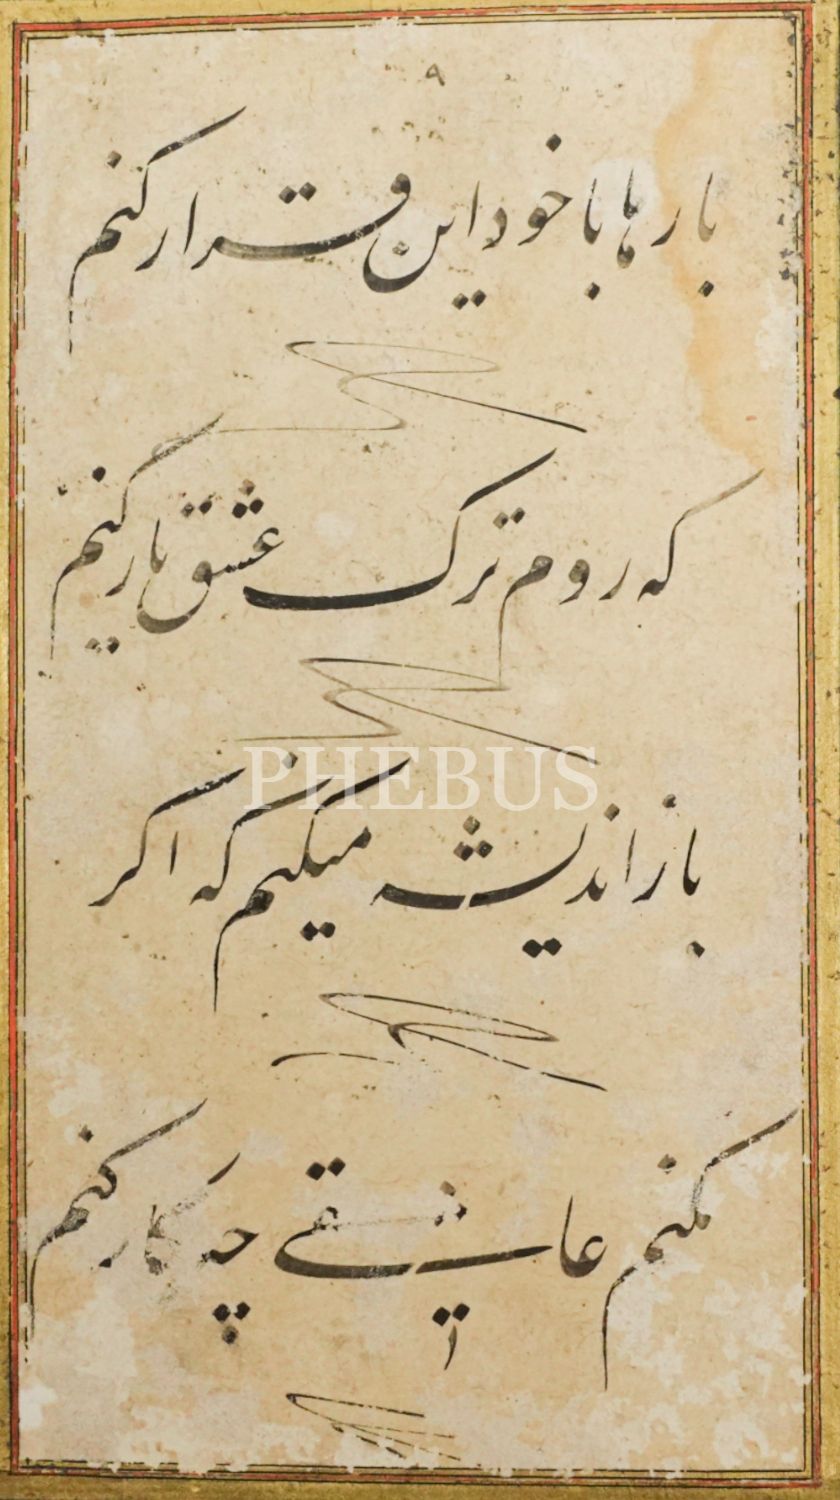 ٩
بارها با خود این قرار کنم
که روم ترک عشق یار کنم
باز اندیشه میکنم که اگر
PHEBUS
نکنم عاشقی چه کار کنم